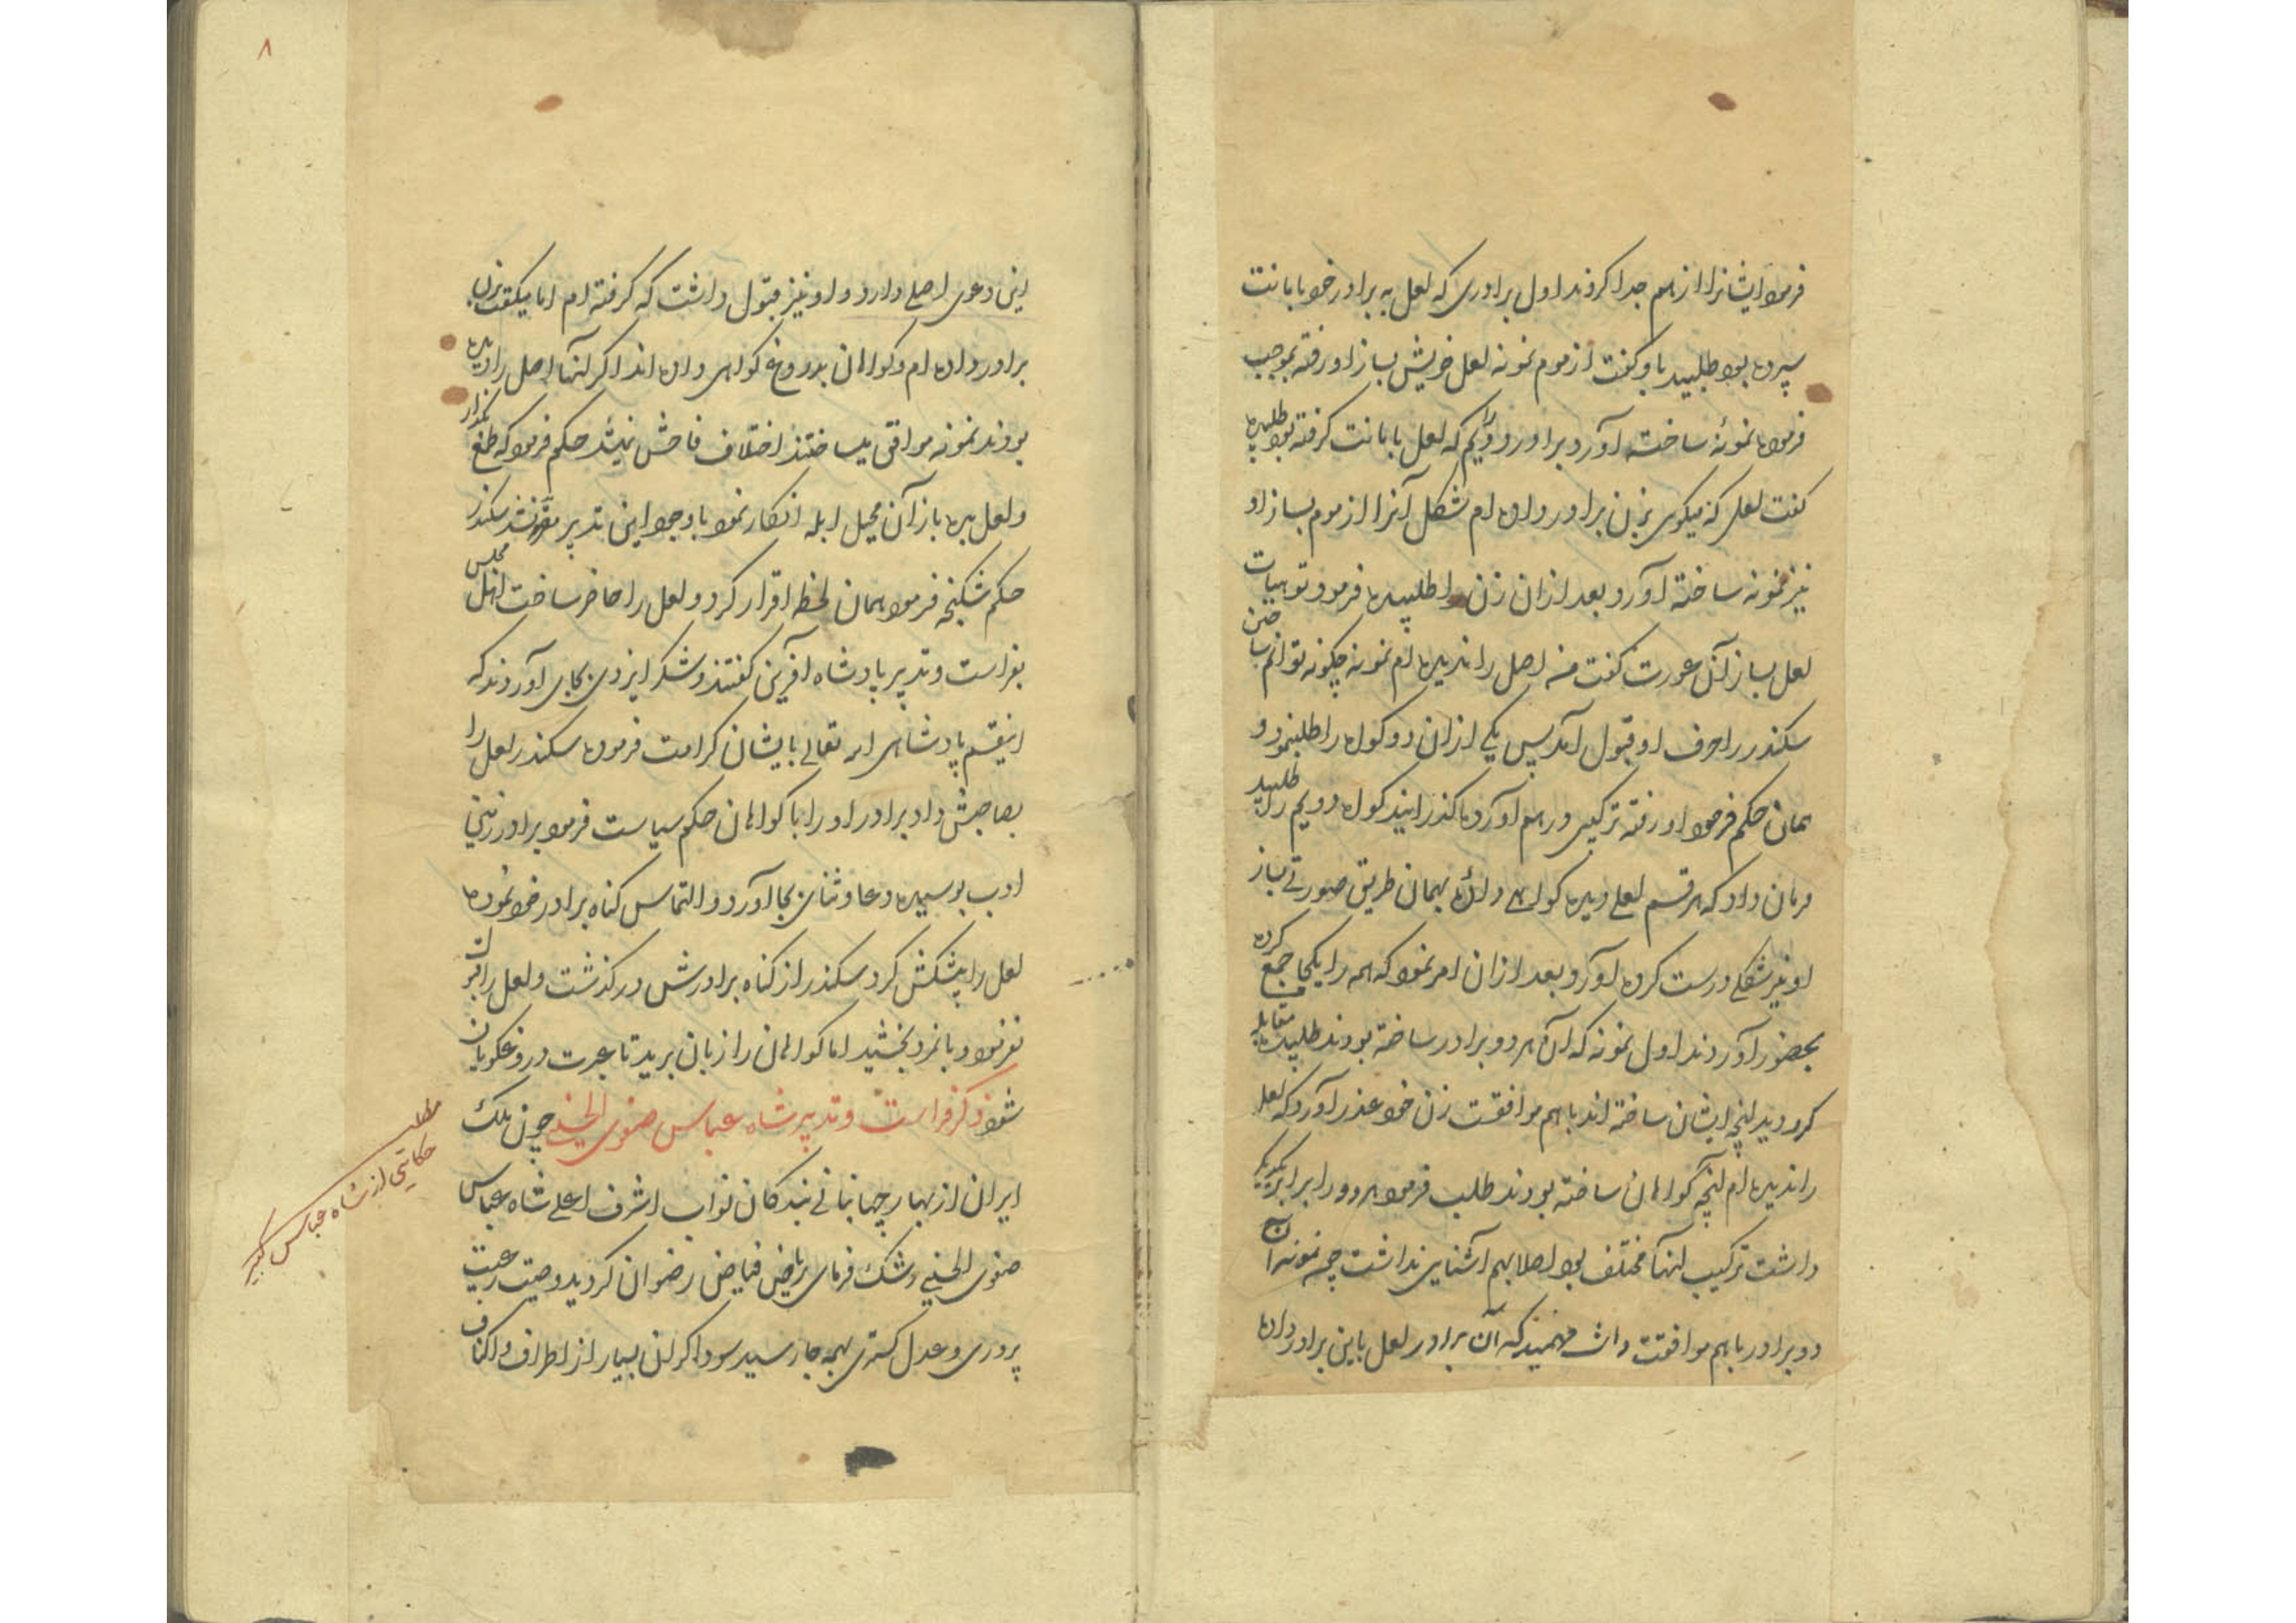 فرمود ایشانرا از هم جدا کردند اول برادری که لعل به برادر خود بامانت
سپرده بود طلبید باو گفت از موم نمونه لعل خویش بساز او رفته بموجب
فرموده نمونهٔ ساخته آورد برادر دویم را که لعل بامانت گرفته بود طلبیده
گفت لعلی که میگوی بزن برادر داده ام شکل آنرا از موم بساز او
نیز نمونه ساخته آورد بعد از ان زن را طلبیده فرمود تو هیات
لعل بساز آن عورت گفت من اصل را ندیده ام نمونه چگونه توانم ساختن
سکندر را حرف او قبول آمد پس یکی از ان دو گواه را طلبنمود و
همان حکم فرمود او رفته ترکیبی درهم آورده گذرانید گواه دویم را طلبید
فرمان داد که هر قسم لعلی دیده گواهی دادهٔ بهمان طریق صورتی بساز
او نیز شکلی درست کرده آورد بعد از ان امر نمود که همه را یکجا جمع کرده
بحضور آوردند اول نمونه که آن هر دو برادر ساخته بودند طلبیده مقابله
کرد دید آنچه ایشان ساخته اند باهم موافقت زن خود عذر آورد که لعل
را ندیده ام آنچه گواهان ساخته بودند طلب فرمود هر دو را برابر یکدیگر
داشت ترکیب آنها مختلف بود اصلا بهم آشنایی نداشت چه نمونه آن
دو برادر باهم موافقت داشت فهمید که آن برادر لعل باین برادر داده
۸
این دعوی اصلی دارد و او نیز قبول داشت که گرفته ام اما میگفت بزن
برادر داده ام و گواهان بدروغ گواهی داده اند اگر آنها اصل را دیده
بودند نمونه موافق میساختند اختلاف فاحش نمیشد حکم فرمود که طمع بگذار
و لعل بده باز آن محیل ابله انکار نمود باوجود این تدبیر مقر نشد سکندر
حکم شکنجه فرمود همان لحظه اقرار کرد و لعل را حاضر ساخت اهل مجلس
بفراست و تدبیر پادشاه آفرین گفتند و شکر ایزدی بجای آوردند که
اینقسم پادشاهی الله تعالی بایشان کرامت فرموده سکندر لعل را
بصاحبش داد برادر او را با گواهان حکم سیاست فرمود برادر زمین
ادب بوسیده دعا و ثنای بجا آورد و التماس گناه برادر خود نموده
لعل را پیشکش کرد سکندر از گناه برادرش در گذشت و لعل را قبول
نفرمود و بانمرد بخشید اما گواهان را زبان برید تا عبرت دروغگویان
شود ذکر فراست و تدبیر شاه عباس صفوی الحسینی چون ملک
ایران از بهار جهانبانی بندگان نواب اشرف اعلی شاه عباس
صفوی الحسینی رشک فرمای ریاض فیاض رضوان گردید و صیت رعیت
پروری و عدل گستری بهمه جا رسید سوداگران بسیار از اطراف و اکناف
مطلب
حکایتی از شاه عباس کبیر